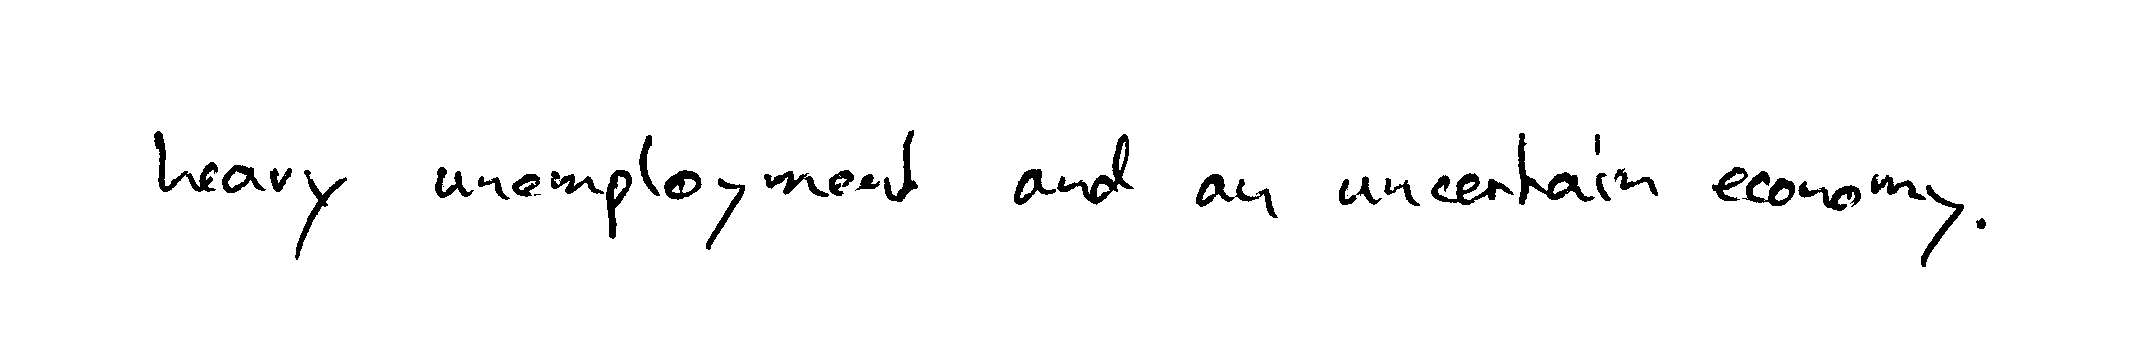 heavy unemployment and an uncertain economy.